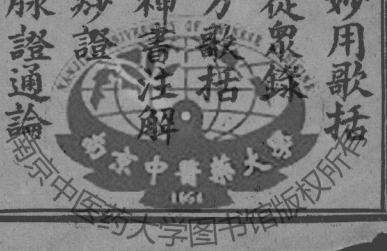 妙用歌括
從眾錄
方歌括
神書注解
妙證
脈證通論
南京中醫藥大學
1954
南京中医药大学图书馆版权所有